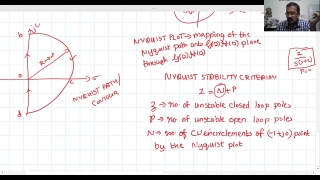 jω
b
R→∞
a
σ
c
d
NYQUIST PATH/
CONTOUR
NYQUIST PLOT → mapping of the
Nyquist path onto G(s)H(s) plane
through G(s)H(s)
NYQUIST STABILITY CRITERION
Z = N + P
Z → no. of unstable closed loop poles
P → no. of unstable open loop poles
N → no. of CW encirclements of (-1+j0) point
by the Nyquist plot
K
S(S+2)
P=0